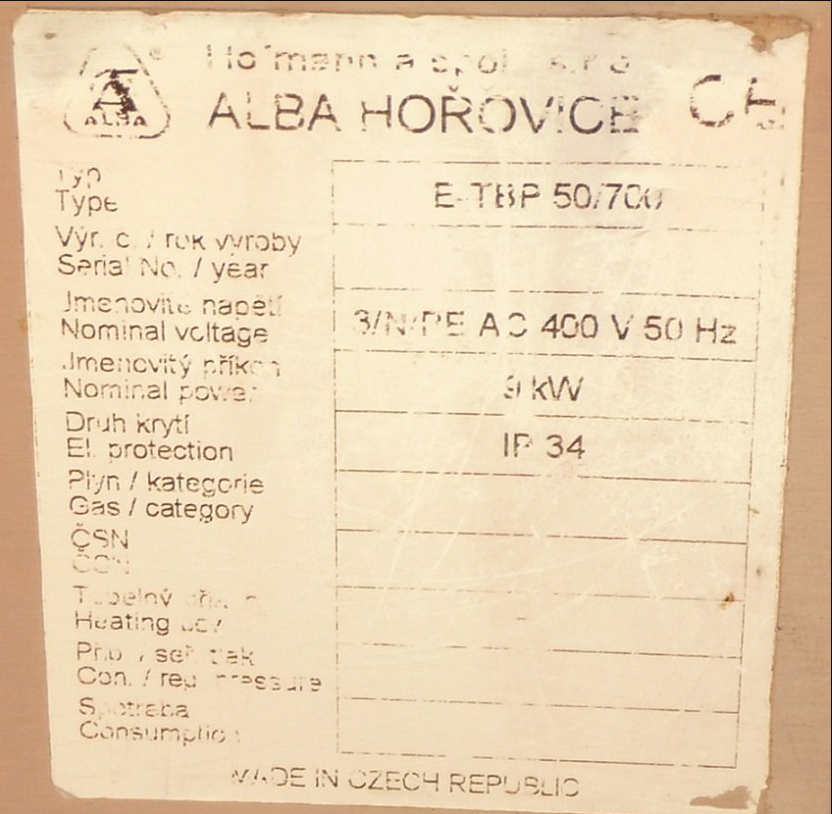 ALBA
Hofmann a spol. s.r.o.
ALBA HOŘOVICE CE
Typ
Type E-TBP 50/700
Výr. č. / rok výroby
Serial No. / year
Jmenovité napětí
Nominal voltage 3/N/PE AC 400 V 50 Hz
Jmenovitý příkon
Nominal power 9 kW
Druh krytí
El. protection IP 34
Plyn / kategorie
Gas / category
ČSN
ČSN
Tepelný příkon
Heating
Přip. / seř. tlak
Con. / reg. pressure
Spotřeba
Consumption
MADE IN CZECH REPUBLIC